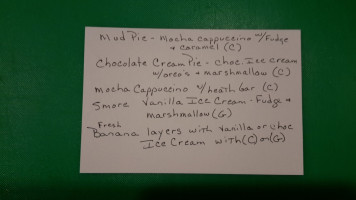 Mud Pie - Mocha Cappuccino w/Fudge
+ caramel (C)
Chocolate Cream Pie - Choc. Ice Cream
w/oreo's + marshmallow (C)
Mocha Cappuccino w/heath bar (C)
Smore Vanilla Ice Cream - Fudge +
marshmallow (G)
Fresh
Banana layers with vanilla or choc
Ice Cream with (C) or (G)